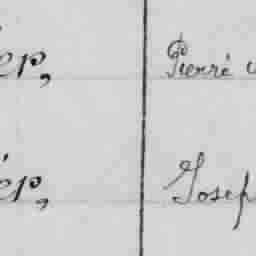 ep, Pierre
ép, Josep